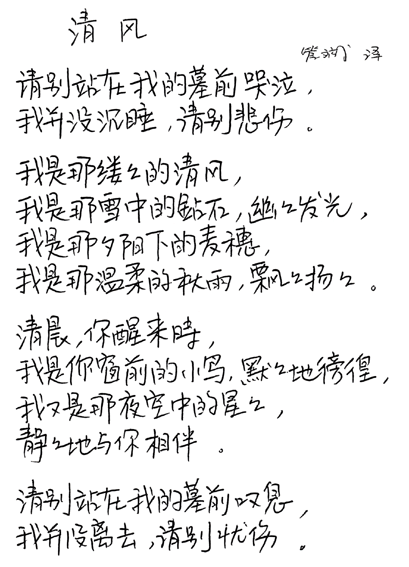 清风
泽
请别站在我的墓前哭泣，
我并没沉睡，请别悲伤。
我是那缕々的清风，
我是那雪中的鉆石，幽々发光，
我是那夕阳下的麦穗，
我是那温柔的秋雨，飘々扬々。
清晨，你醒来時，
我是你窗前的小鸟，默々地徬徨，
我又是那夜空中的星々，
静々地与你相伴。
请别站在我的墓前叹息，
我并没离去，请别忧伤。